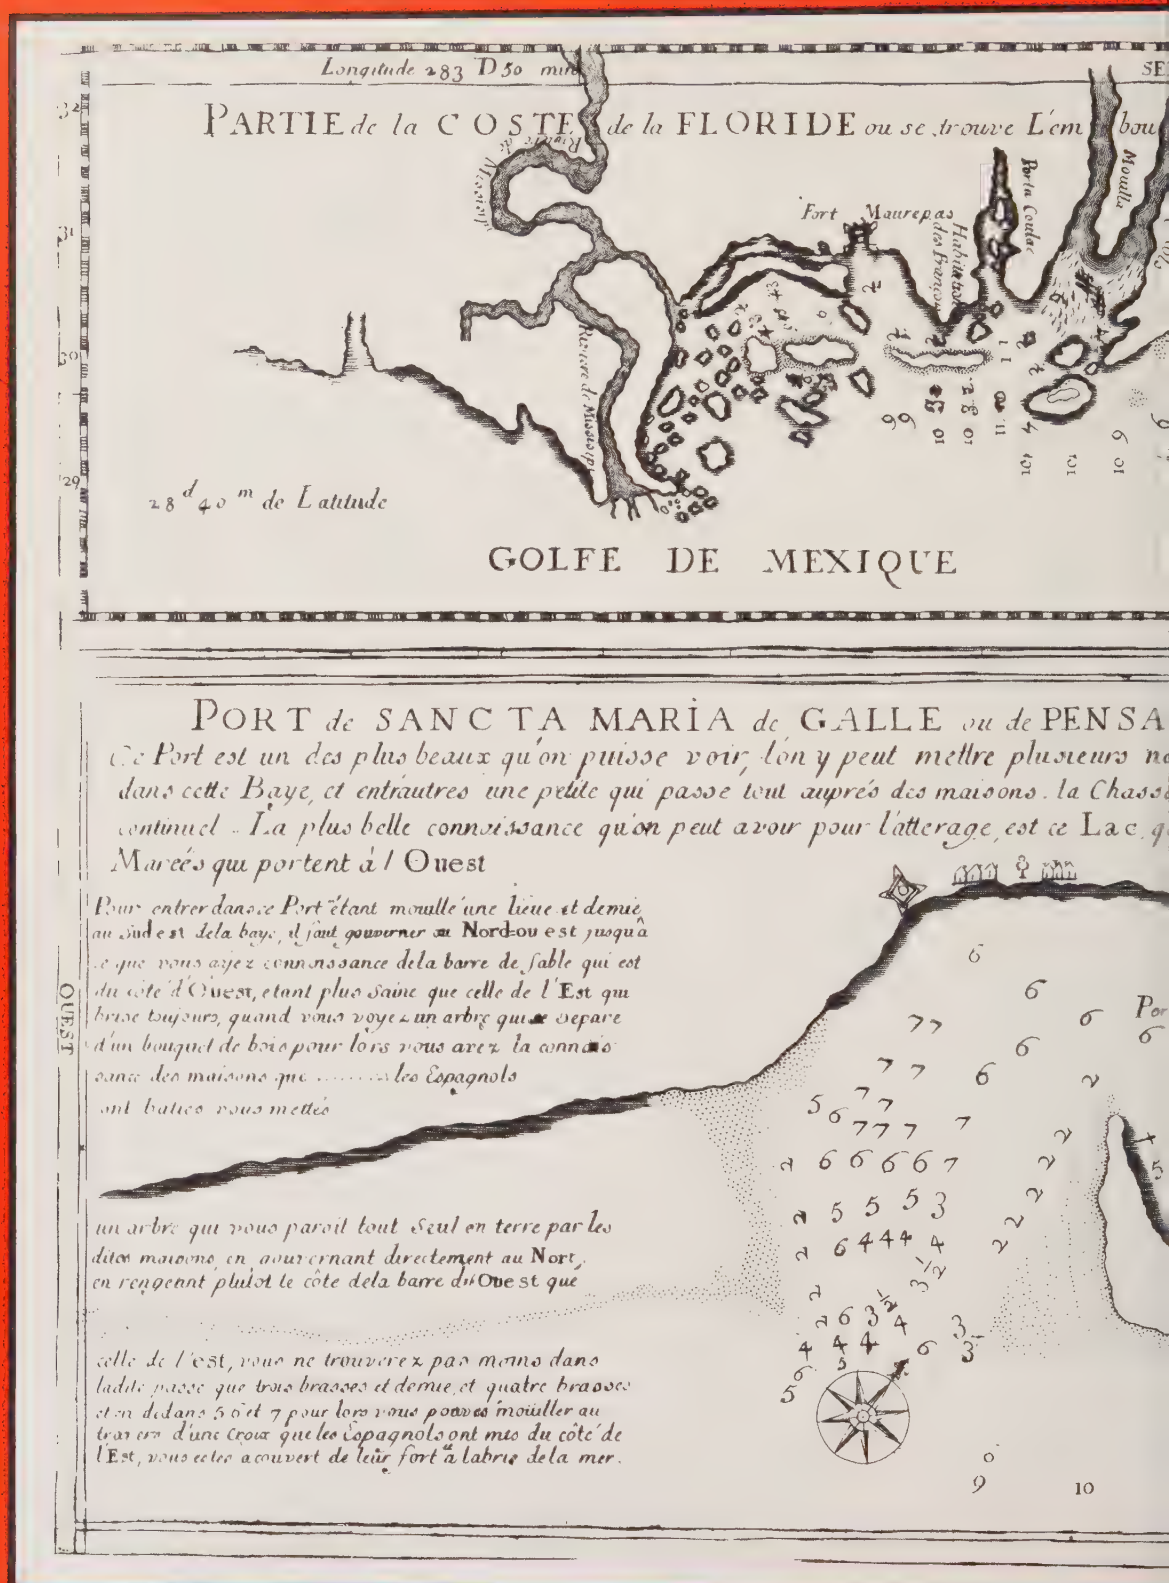 Longitude 283 D 50 min
SE
PARTIE de la COSTE de la FLORIDE ou se trouve L'em bou
32
31
30
29
Riviere de Missisipi
Fort Maurepas
Habitation des François
Porta Coulac
Mouilla
Riviere de Missisipi
28 d 40 m de Latitude
GOLFE DE MEXIQUE
PORT de SANCTA MARIA de GALLE ou de PENSA
Ce Port est un des plus beaux qu'on puisse voir, l'on y peut mettre plusieurs na
dans cette Baye, et entrautres une petite qui passe tout auprés des maisons. la Chasse
continuel . La plus belle connoissance qu'on peut avoir pour l'atterage, est ce Lac, qu
Mareés qui portent à l Ouest
Pour entrer dans ce Port étant mouillé une lieue et demie
au Sud est dela baye, il faut gouverner au Nord=ou est jusqu'à
ce que vous ayez connoissance dela barre de sable qui est
du côté d'Ouest, etant plus Saine que celle de l'Est qui
brise toujours, quand vous voyez un arbre qui se separe
d'un bouquet de bois pour lors vous avez la connois
sance des maisons que ........ les Espagnols
ont baties vous mettés
OUEST
Por
un arbre qui vous paroit tout Seul en terre par les
dites maisons, en gouvernant directement au Nort,
en rengeant plutot le côte dela barre du Ouest que
celle de l'est, vous ne trouverez pas moins dans
ladite passe que trois brasses et demie, et quatre brasses
et en dedans 5 6 et 7 pour lors vous pouves moüiller au
travers d'une Croix que les Espagnols ont mis du côté de
l'Est, vous estes acouvert de leur fort à labrie dela mer.
6
6
6 6
7 7
6
7 7 6 2
5 6
7 7 7 7
2 6 6 6 6 7 2
2 5 5 5 3 2
2 6 4 4 4 4 2
3 1/2
2 6 3 1/2 4 3
4 4 4 6 3
5
6
5
9
10